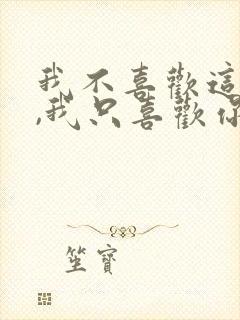 我不喜歡這
,我只喜歡你
坐寶